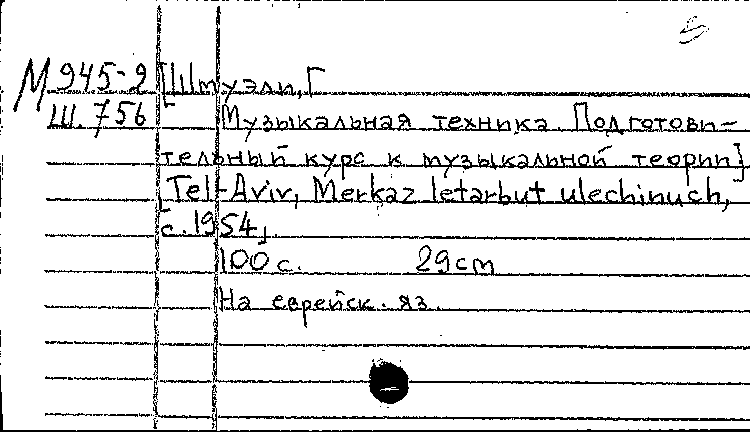 М 945-2 [Шмуэли, Г
Ш.756 Музыкальная техника. Подготови-
тельный курс к музыкальной теории]
[Tel-Aviv, Merkaz letarbut ulechinuch,
c.1954]
100 с. 29 cm
На еврейск. яз.